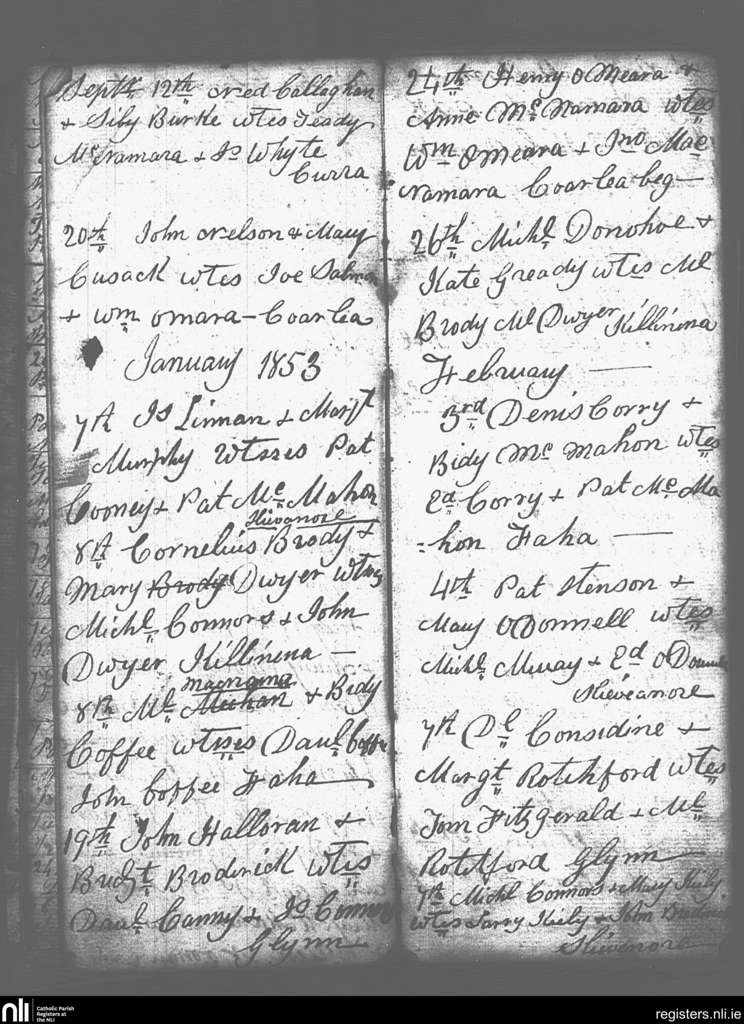 Septr 12th Ned Callaghan
& Siby Burke wtes Teady
McNamara & Js Whyte
Curra
20th John Nelson & Mary
Cusack wtes Joe
& Wm Omara - Coarlea
January 1853
7th Js Linnan & Margt
Murphy Wtsses Pat
Cooney & Pat Mc Mahon
Slievanore
8th Cornelius Brody &
Mary Brody Dwyer wtses
Michl Connors & John
Dwyer Killinena —
Macnama
8th Ml Meehan & Bidy
Coffee wtsses Danl Coffee
John Coffee Faha
19th John Halloran &
Bridgt Broderick wtes
Danl Canny & Js Connors
Glynn —
24th Henry O Meara &
Anne Mc Namara wtes
Wm OMeara & Jno Mac
Namara Coarlea beg —
26th Michl Donohoe &
Kate Gready wtes Ml
Brody Ml Dwyer Killinena
February —
3rd Denis Corry &
Bidy Mc Mahon wtes
Ed Corry & Pat Mc Ma
=hon Faha —
4th Pat Henson &
Mary O Donnell wtes
Michl & Ed O Donnell
Slieveanore
7th Dl Considine &
Margt Rotchford wtes
Tom Fitzgerald & Ml
Rotchford Glynn —
7th Michl Connors & Mary Kiely
wtes Kiely & John
Slievenore
nli
Catholic Parish
Registers at
the NLI
registers.nli.ie